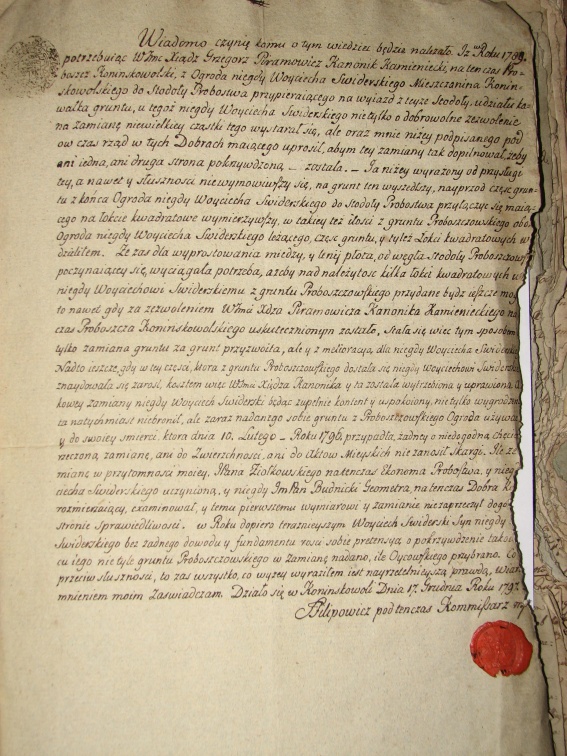 Wiadomo czynię komu o tym wiedzieć będzie należało. Iż w Roku 1789.
potrzebuiąc W͠Jmć Xiądz Grzegorz Piramowicz Kanonik Kamieniecki, na ten czas Pro-
boszcz Koninskowolski, z Ogroda niegdy Woyciecha Swiderskiego Mieszczanina Konin-
skowolskiego do Stodoły Probostwa przypieraiącego na wyiazd z teyże Stodoły, udziału ka-
wałka gruntu, u tegoż niegdy Woyciecha Swiderskiego nietylko o dobrowolne zezwolenie
na zamianę niewielkiey cząstki tego wystarał się, ale oraz mnie niżey podpisanego pod
ow czas rząd w tych Dobrach maiącego uprosił, abym tey zamiany tak dopilnował, żeby
ani iedna, ani druga strona pokrzywdzoną – została. – Ja niżey wyrażony od przysługi
tey, a nawet y słuszności niewymowiwszy się, na grunt ten wyszedłszy, nayprzod część grun-
tu z końca Ogroda niegdy Woyciecha Swiderskiego do Stodoły Probostwa przyłączyć się maią-
cego na łokcie kwadratowe wymierzywszy, w takiey też ilości z gruntu Proboszczowskiego obok
Ogroda niegdy Woyciecha Swiderskiego leżącego, część gruntu, y tyleż Łokci kwadratowych w
dzieliłem. Że zas dla wyprostowania miedzy, y lenij płota, od węgła Stodoły Proboszczow
poczynaiącey się, wyciągała potrzeba, ażeby nad należytość kilka łokci kwadratowych
niegdy Woyciechowi Swiderskiemu z gruntu Proboszczowskiego przydane bydź ieszcze mog
to nawet gdy za zezwoleniem W͠Jmći Xdza Piramowicza Kanonika Kamienieckiego na
czas Proboszcza Koninskowolskiego uskutecznionym zostało, stała się więc tym sposobem
tylko zamiana gruntu za grunt przyzwoita, ale y z melioracyą dla niegdy Woyciecha Swiderski
Nadto ieszcze, gdy w tey części, ktora z gruntu Proboszczowskiego dostała się niegdy Woyciechowi Swiderski
znaydowała się zarosl, kosztem więc W͠Jmci Xiędza Kanonika y ta została wytrzebiona y uprawiona
kowey zamiany niegdy Woyciech Swiderski będąc zupełnie kontent y uspokoiony, nietylko wygrodze
ia natychmiast niebronił, ale zaraz nadanego sobie gruntu z Proboszczowskiego Ogroda używa
y do swoiey smierci, ktora dnia 10. Lutego – Roku 1796 przypadła, żadney o niedogodną
rzeczoną zamianę, ani do Zwierzchności, ani do Aktow Mieyskich nie zanosił Skargi. Ile że
mianę w przytomności moiey, JPana Ziołkowskiego natenczas Ekonoma Probostwa, y nieg
ciecha Swiderskiego uczynioną, y niegdy ImPan Budnicki Geometra, na tenczas Dobra
rozmierzaiący, examinował, y temu pierwszemu wymiarowi y zamianie niezaprzeczył dogo
stronie Sprawiedliwości. w Roku dopiero teraznieyszym Woyciech Swiderski Syn niegdy
Swiderskiego bez żadnego dowodu y fundamentu rosci sobie pretensyą, o pokrzywdzenie iakoi
cu iego nie tyle gruntu Proboszczowskiego w zamianę nadano, ile Oycowskiego przybrano. Co
przeciw słuszności, to zas wszystko, co wyżey wyraziłem iest nayrzetelnieyszą prawdą,
mnieniem moim Zaswiadczam. Działo się w Koninskowoli Dnia 17. Grudnia Roku 1797.
Filipowicz pod tenczas Kommissarz